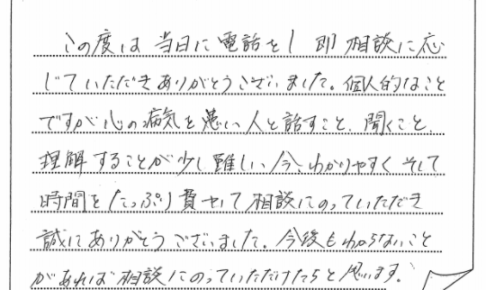 この度は 当日に電話をし 即相談に応
じていただきありがとうございました。個人的なこと
ですが心の病気を患い人と話すこと、聞くこと、
理解することが少し難しい今、わかりやすく そして
時間をたっぷり費やして相談にのっていただき
誠にありがとうございました。今後もわからないこと
があれば相談にのっていただけたらと思います。